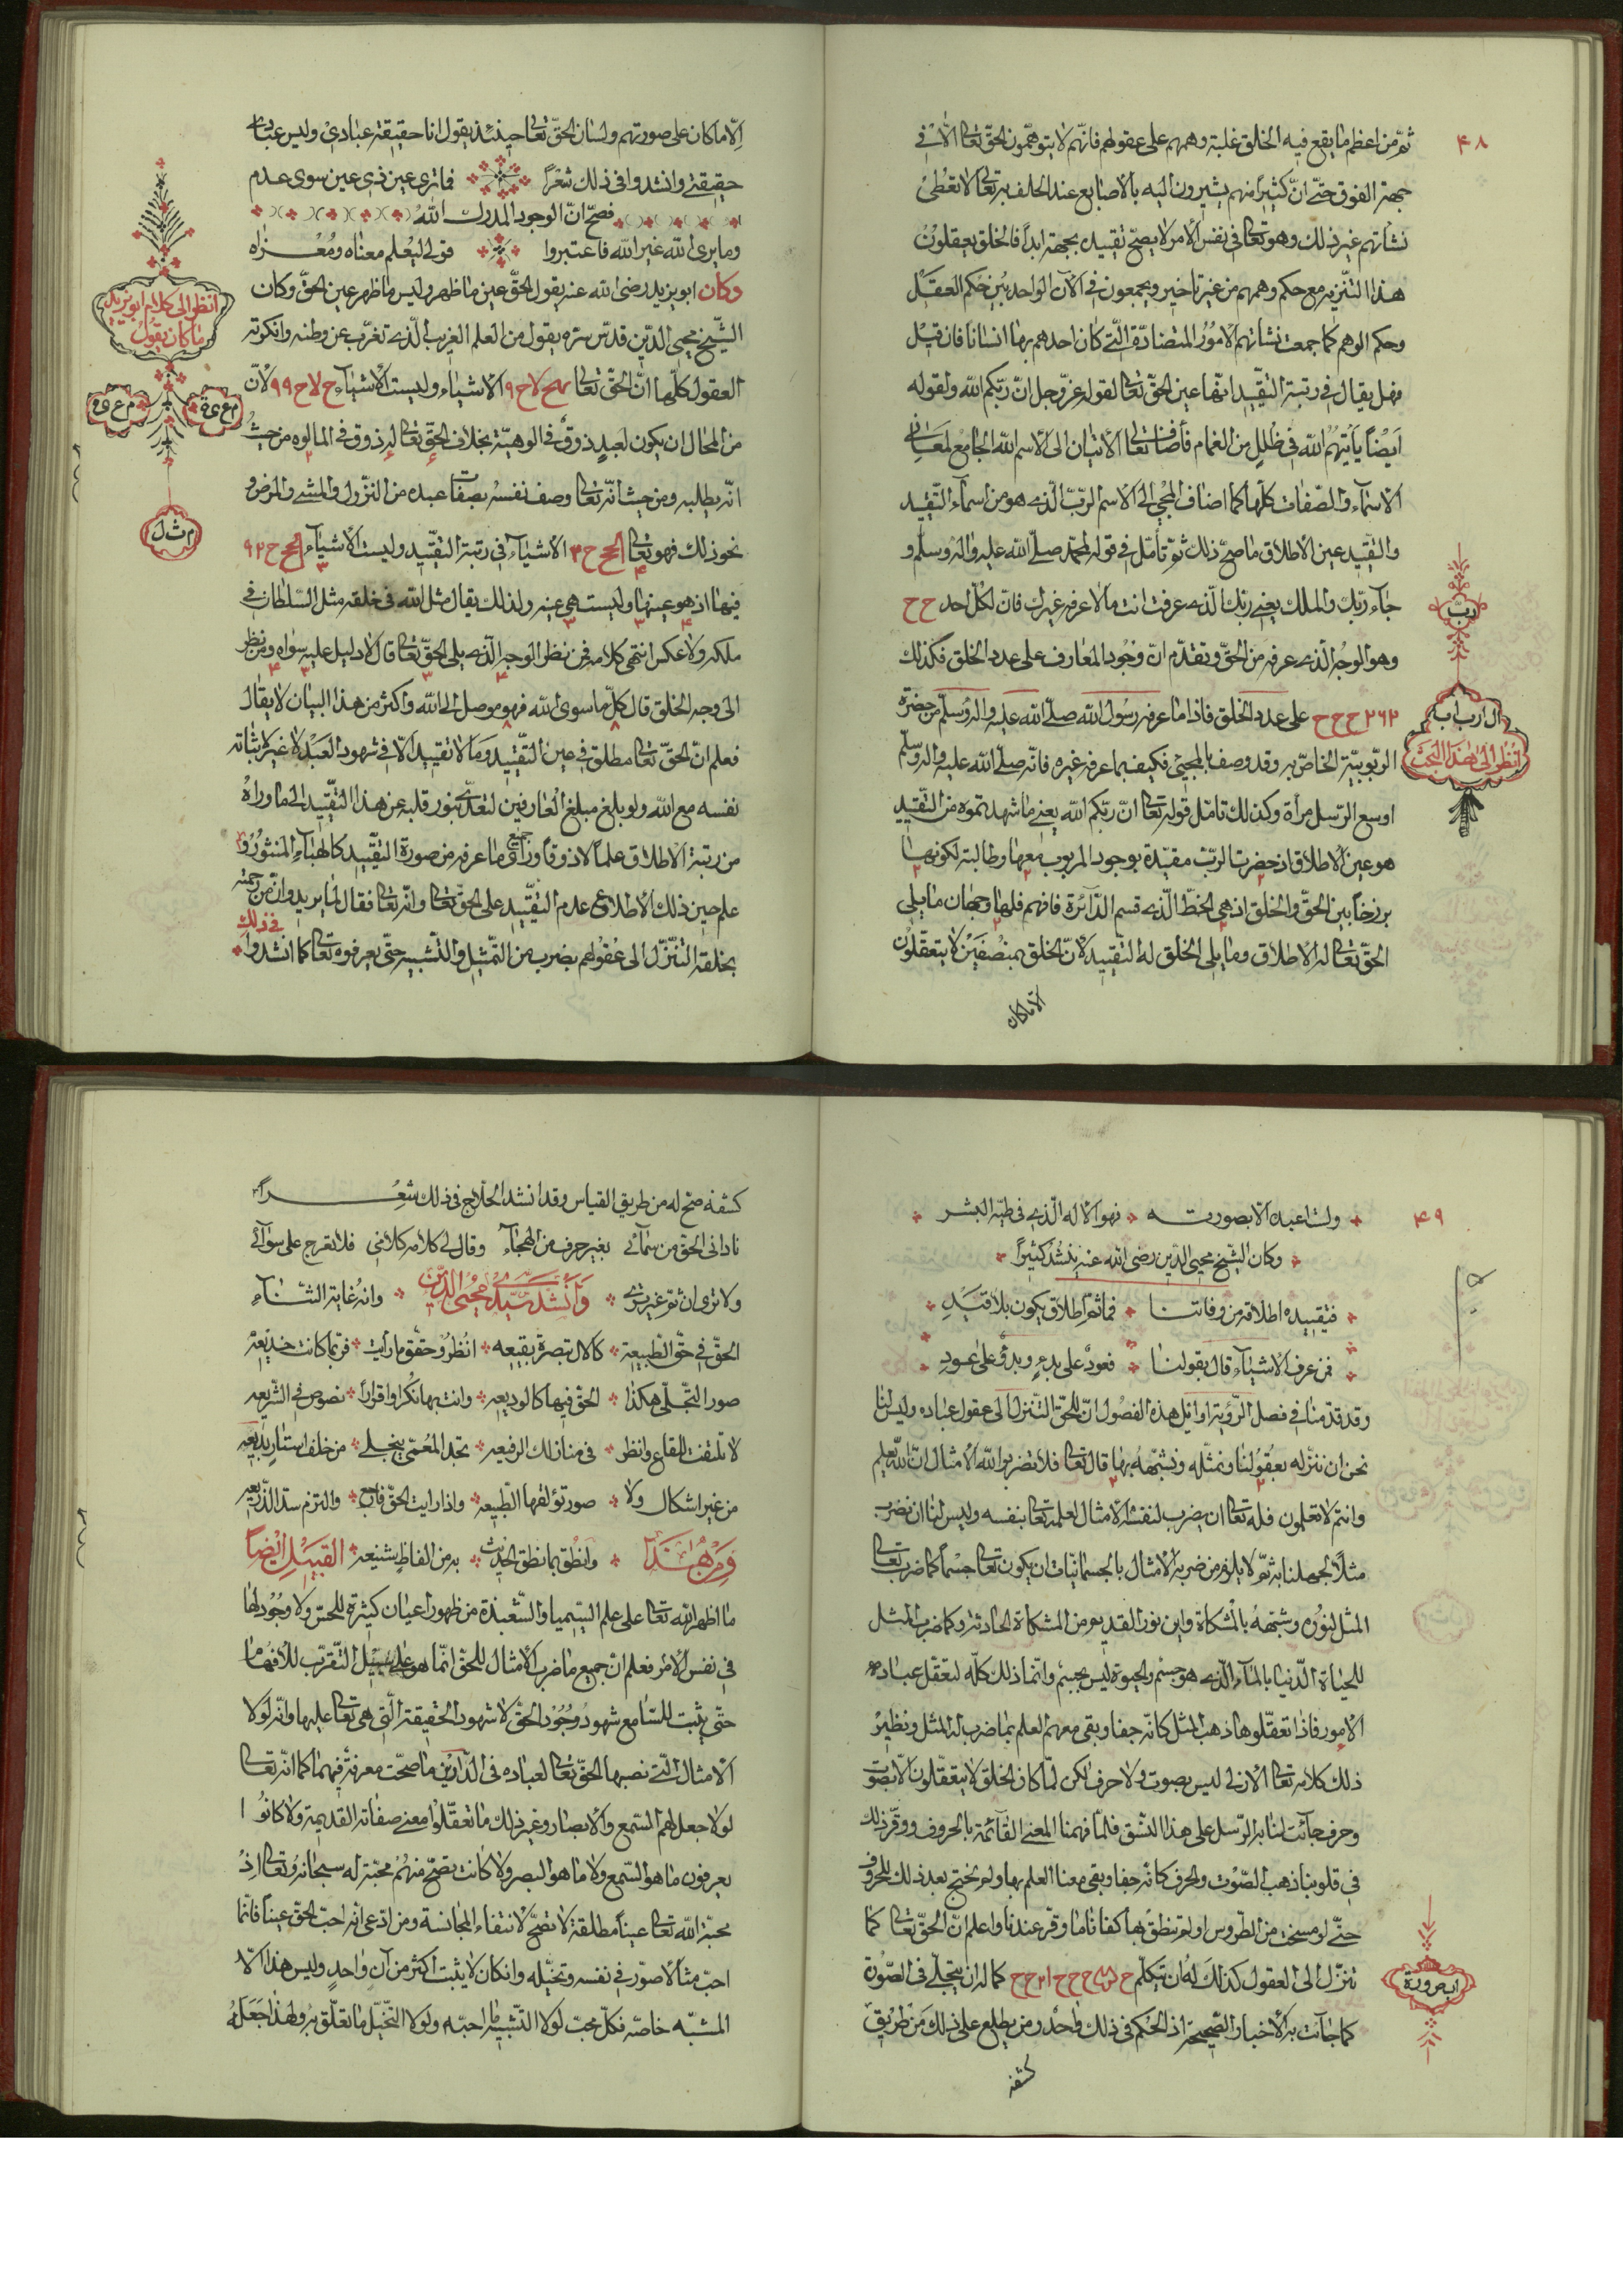 ۴۸
ثمّ من اعظم ما يقع فيه الخلق غلبة وهمهم على عقولهم فانّهم لا يتوهّمون الحقّ تعالى الّا في
جهة الفوق حتّى انّ كثيراً منهم يشيرون اليه بالاصابع عند الحلف به تعالى لا تعطى
نشأتهم غير ذلك وهو تعالى في نفس الأمر لا يصحّ تقييده بجهة ابداً فالخلق يعقلون
هذا التنزيه مع حكم وهمهم من غير تاخير ويجمعون في الآن الواحد بين حكم العقل
وحكم الوهم كما جمعت نشأتهم الامور المتضادّة الّتي كان احدهم بها انساناً فان قيل
فهل يقال في رتبة التقييد انّها عين الحقّ تعالى لقوله عزّ وجل انّ ربّكم الله ولقوله
ايضاً يأتيهم الله في ظلل من الغمام فأضاف تعالى الأتيان الى الاسم الله الجامع لمعاني
الاسماء والصّفات كلّها كما اضاف المجئ الى الاسم الربّ الّذي هو من اسماء التّقييد
والتقييد عين الاطلاق ما صحّ ذلك ثمّ تأمّل في قوله لمحمّد صلّى الله عليه واله وسلم و
جاء ربّك والملك يعني ربّك الّذي عرفت انت ما لا عرفه غيرك فان لكلّ احد ح ح
وهو الوجه الّذي عرفه من الحقّ وتقدّم انّ وجود المعارف على عدد الخلق فكذلك
۲۶۲ ح ح ح على عدد الخلق فاذا ما عرفه رسول الله صلّى الله عليه واله وسلّم من حضرة
الرّبوبيّة الخاصّ به وقد وصف بالمجئ فكيف بما عرفه غيره فانّه صلّى الله عليه واله وسلّم
اوسع الرّسل مرأة وكذلك تامّل قوله تعالى انّ ربّكم الله يعني ما شهدتموه من التّقييد
هو عين الأطلاق اذ حضرة الربّ مقيّدة بوجود المربوب معها وطالبة لكونها
برزخاً بين الحقّ والخلق اذ هي الخطّ الّذي قسم الدّائرة فافهم فلها وجهان ما يلى
الحقّ تعالى له الأطلاق وما يلي الخلق له التقييد لانّ الخلق بمنصفين لا يتعقّلون
الّا ما كان
ربّ
ال ارب اب
انظر الى هذا البحث
الّا ما كان على صورتهم ولسان الحقّ تعالى حينئذ يقول انا حقيقة عبادي وليس عبادي
حقيقتي وانشدوا في ذلك شعراً فما ترى عين ذي عين سوى عدم
فصحّ انّ الوجود المدرك الله
وما يرى الله غير الله فاعتبروا قولي ليعلم معناه ومغزاه
وكان ابو يزيد رضى الله عنه يقول الحقّ عين ما ظهر وليس ما ظهر عين الحقّ وكان
الشّيخ محيي الدّين قدّس سرّه يقول من العلم الغريب الّذي تغرّب عن وطنه وانكرته
العقول كلّها انّ الحقّ تعالى الأشياء وليست الاشياء لانّ
من المحال ان يكون لعبد ذوق في الوهيّة بخلاف الحقّ تعالى له ذوق في المالوه من حيث
انّه يطلبه ومن حيث انّه تعالى وصف نفسه بصفات عبده من النّزول والمشي والمرض و
نحو ذلك فهو تعالى الاشياء في رتبة التقييد وليست الاشياء
فيها اذ هو عينها وليست هي عينه ولذلك يقال مثل الله في خلقه مثل السّلطان في
ملكه ولا عكس انتهى كلامه فمن نظر الوجه الّذي يلي الحقّ تعالى قال لا دليل عليه سواه ومن نظر
الى وجه الخلق قال كلّ ما سوى الله فهو موصل الى الله واكثر من هذا البيان لا يقال
فعلم انّ الحقّ تعالى مطلق في عين التّقييد وما لا تقييد الّا في شهود العبد لا غير لاثباته
نفسه مع الله ولو بلغ مبلغ العارفين لتعدّى بنور قلبه عن هذا التّقييد الى ما وراه
من رتبة الاطلاق علماً لا ذوقاً وراى جميع ما عرفه من صورة التقييد كالهباء المنثور و
علم حين ذلك الأطلاع عدم التقييد على الحقّ تعالى وانّه تعالى فعّال لما يريد وانّ من رحمته
بخلقه التنزّل الى عقولهم بضرب من التّمثيل والتّشبيه حتّى يعرفوه تعالى كما انشدوا في ذلك
انظر الى كلام ابو يزيد
ما كان يقول
م ث ل
۴۹
ولست اعبده الّا بصورته فهو الأله الّذي في طيّه البشر
وكان الشّيخ محيي الدّين رضى الله عنه ينشد كثيراً
فتقييده اطلاقه من وفاتنا فما ثمّ اطلاق يكون بلا قيد
فمن عرف الاشياء قال بقولنا فعود على بدء وبدؤ على عود
وقد قدّمنا في فصل الرّؤية اوايل هذه الفصول انّ للحقّ التّنزل الى عقول عباده وليس لنا
نحن ان ننزله بعقولنا ونمثّله ونشبّهه بها قال تعالى فلا تضربوا لله الأمثال انّ الله يعلم
وانتم لا تعلمون فله تعالى ان يضرب لنفسه الأمثال لعلمه تعالى بنفسه وليس لنا ان نضرب
مثلاً لجهلنا به ثمّ لا يلزم من ضربه الأمثال بالجسمانيّات ان يكون تعالى جسماً كما ضرب تعالى
المثل لنوره وشبّهه بالمشكاة واين نور القديم من المشكاة الحادثة وكما ضرب المثل
للحياة الدّنيا بالماء الّذي هو جسم والحيوة ليس بجسم وانّما ذلك كلّه لتعقّل عباده
الأمور فاذا تعقّلوها ذهب المثل كانّه جفا وبقى معهم العلم بما ضرب له المثل ونظير
ذلك كلامه تعالى الأزلى ليس بصوت ولا حرف لكن لمّا كان الخلق لا يتعقّلون الّا بصوت
وحرف جائت لنا به الرّسل على هذا النّسق فلمّا فهمنا المعنى القائمة بالحروف ووقر ذلك
في قلوبنا ذهب الصّوت والحرف كانّه جفا وبقى معنا العلم بها ولم نحتج بعد ذلك للحروف
حتّى لو مسخت من الطّروس او لم تنطق بها كفانا ما وقر عندنا واعلم انّ الحقّ تعالى كما
تنزّل الى العقول كذلك له ان يتكلّم كما له ان يتجلّى في الصّورة
كما جائت به الأخبار الصّحيحة اذ الحكم في ذلك واحد ومن يطلع على ذلك من طريق
كشفه
كشفه صحّ له من طريق القياس وقد انشد الحلّاج في ذلك شعراً
ناداني الحقّ من سمائي بغير حرف من الهجاء وقال لي كلامه كلامي فلا تعرج على سوائي
ولا ترى ان ثمّ غيري وانّه غاية الثّناء وانشد سيّدي محيي الدّين
الحقّ في حقّ الطّبيعة كالال تبصره بقيعه انظر وحقّق ما رايت فربّما كانت خديعة
صور التّجلّي هكذا الحقّ فيها كالوديعه وانت بها نكراً واقراراً نصوص في الشّريعه
لا تلتفت للقاع وانظر في منازلك الرفيعه تجد المعمّى ينجلي من خلف استار بديعه
من غير اشكال ولا صور تؤلفها الطّبيعه واذا رايت الحقّ فارجع والتزم سدّ الذّريعه
وانطق بما نطق الحديث به من الفاظ شنيعه ومن هذا القبيل ايضاً
ما اظهر الله تعالى على علم السّيميا والشّعبذة من ظهور اعيان كثيرة للحسّ ولا وجود لها
في نفس الأمر فعلم انّ جميع ما ضرب الأمثال للحقّ انّما هو على سبيل التّقرّب للأفهام
حتّى يثبت للسّامع شهود وجود الحقّ لا شهود الحقيقة الّتي هي تعالى عليها وانّه لولا
الأمثال الّتي نصبها الحقّ تعالى لعباده في الدّارين ما صحّت معرفة فيهما كما انّه تعالى
لولا جعل لهم السّمع والأبصار وغير ذلك ما تعقّلوا معنى صفاته القديمة ولا كانوا
يعرفون ما هو السّمع ولا ما هو البصر ولا كانت يصحّ منهم محبّة له سبحانه وتعالى اذ
محبّة الله تعالى عيناً مطلقة لا تصحّ لانتفاء المجانسة ومن ادّعى انّه احبّ الحقّ عيناً فانّما
احبّ مثالاً صوّر في نفسه وتخيّله وان كان لا يثبت اكثر من آن واحد وليس هذا الّا
المشبّه خاصّه فكلّ محبّ لولا التّشبيه ما احبّه ولولا التّخيّل ما تعلّق به ولهذا جعله